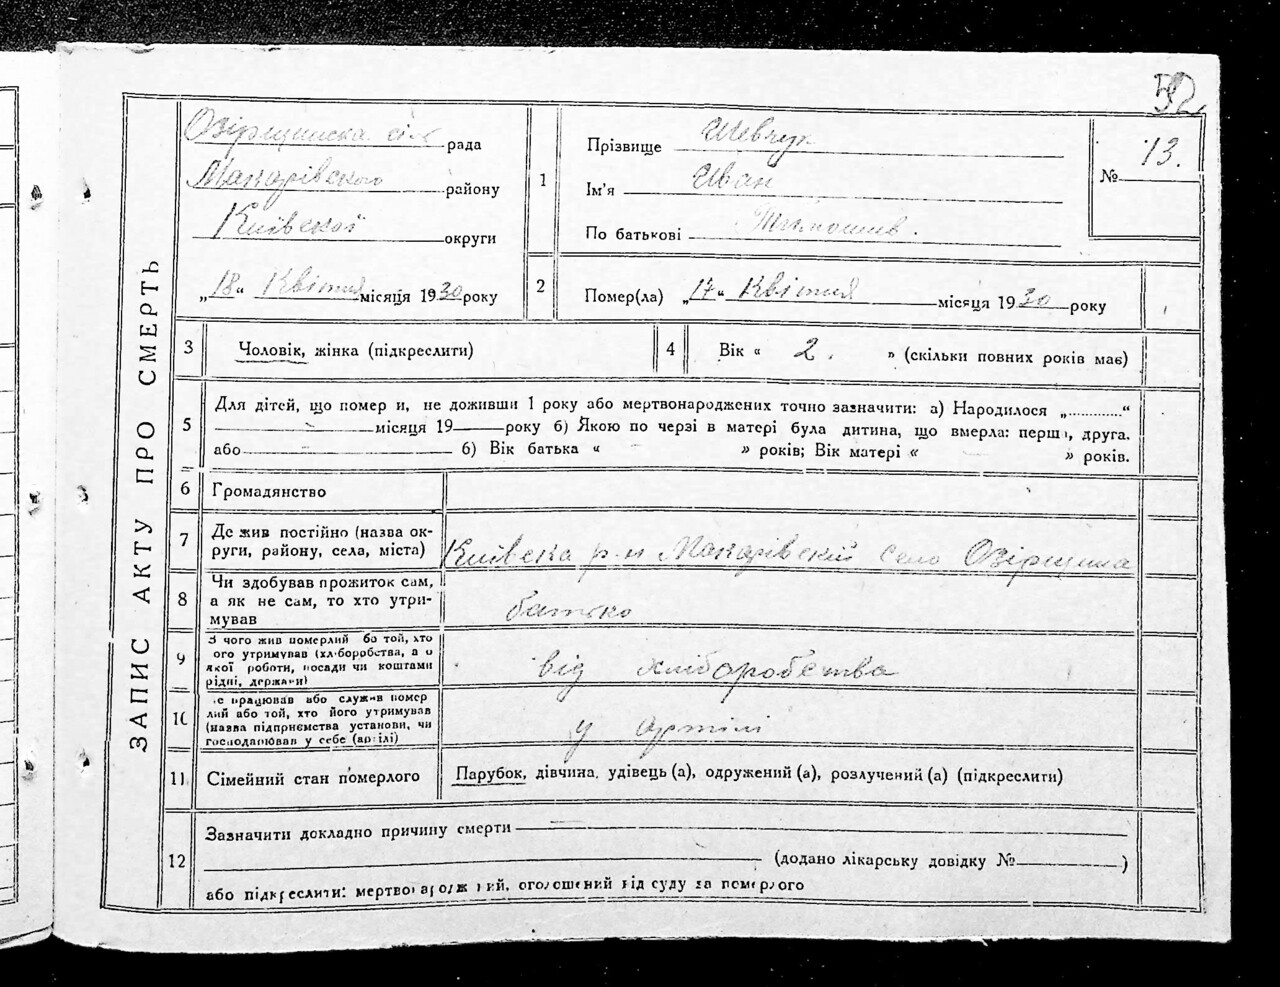 52
ЗАПИС АКТУ ПРО СМЕРТЬ
Озірщинска сіл рада
Макарівского району
Київскої округи
„18“ Квітня місяця 1930 року
1
Прізвище Шевчук
Ім'я Иван
По батькові Тимошив.
№ 13.
2
Помер(ла) „17“ Квітня місяця 1930 року
3 Чоловік, жінка (підкреслити)
4 Вік « 2. » (скільки повних років має)
5
Для дітей, що помер и, не доживши 1 року або мертвонароджених точно зазначити: а) Народилося „............“
місяця 19 року б) Якою по черзі в матері була дитина, що вмерла: перш, друга.
або б) Вік батька « » років; Вік матері « » років.
6 Громадянство
7
Де жив постійно (назва ок-
руги, району, села, міста)
Київска р-н Макарівский село Озірщина
8
Чи здобував прожиток сам,
а як не сам, то хто утри-
мував
батько
9
З чого жив померлий бо той, хто
ого утримував (хл-боробства, а о
якої роботи, посади чи коштами
рідні, держави)
від хліборобства
10
е працював або служив помер
лий або той, хто його утримував
(назва підприємства установи, чи
господарював у себе (артілі)
у артілі
11 Сімейний стан померлого
Парубок, дівчина, удівець (а), одружений (а), розлучений (а) (підкреслити)
12
Зазначити докладно причину смерти
(додано лікарську довідку № )
або підкреслити: мертвонароджений, оголошений від суду за померлого